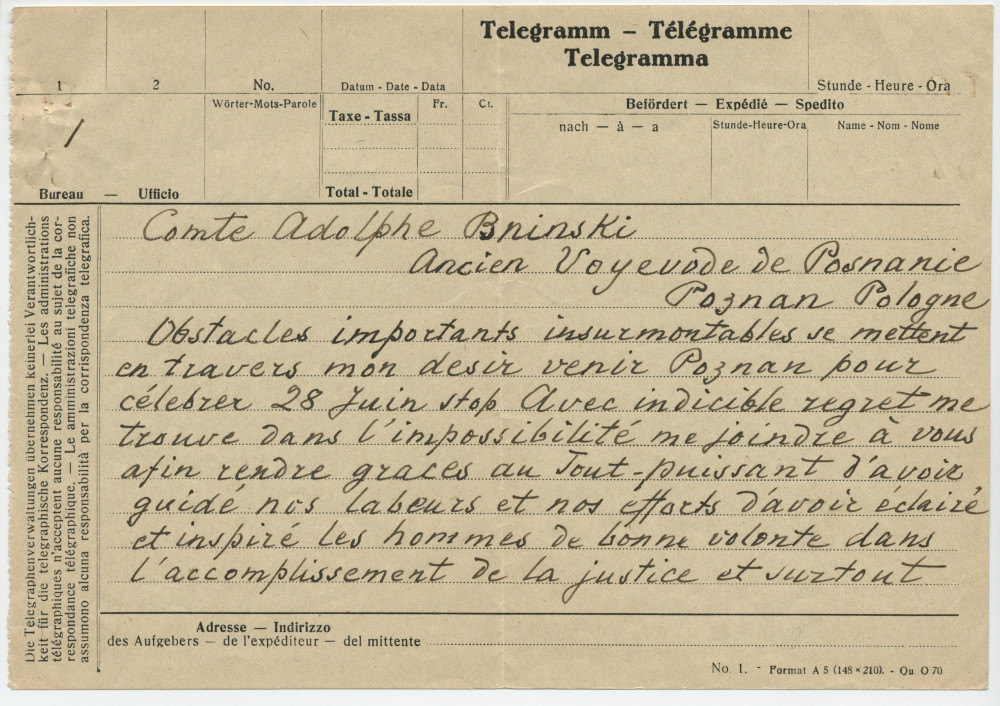 Telegramm – Télégramme
Telegramma
1
2
No.
Datum - Date - Data
Stunde - Heure - Ora
Wörter-Mots-Parole
Taxe - Tassa
Fr.
Ct.
Befördert — Expédié — Spedito
nach — à — a
Stunde-Heure-Ora
Name - Nom - Nome
1
Bureau — Ufficio
Total - Totale
Die Telegraphenverwaltungen übernehmen keinerlei Verantwortlich-
keit für die telegraphische Korrespondenz. — Les administrations
télégraphiques n'acceptent aucune responsabilité au sujet de la cor-
respondance télégraphique. — Le amministrazioni telegrafiche non
assumono alcuna responsabilità per la corrispondenza telegrafica.
Comte Adolphe Bninski
Ancien Voyevode de Posnanie
Poznan Pologne
Obstacles importants insurmontables se mettent
en travers mon desir venir Poznan pour
célebrer 28 Juin stop Avec indicible regret me
trouve dans l'impossibilité me joindre à vous
afin rendre graces au Tout-puissant d'avoir
guidé nos labeurs et nos efforts d'avoir éclairé
et inspiré les hommes de bonne volonte dans
l'accomplissement de la justice et surtout
Adresse — Indirizzo
des Aufgebers — de l'expéditeur — del mittente
No. 1. - Format A 5 (148 × 210). - Qu. O 70